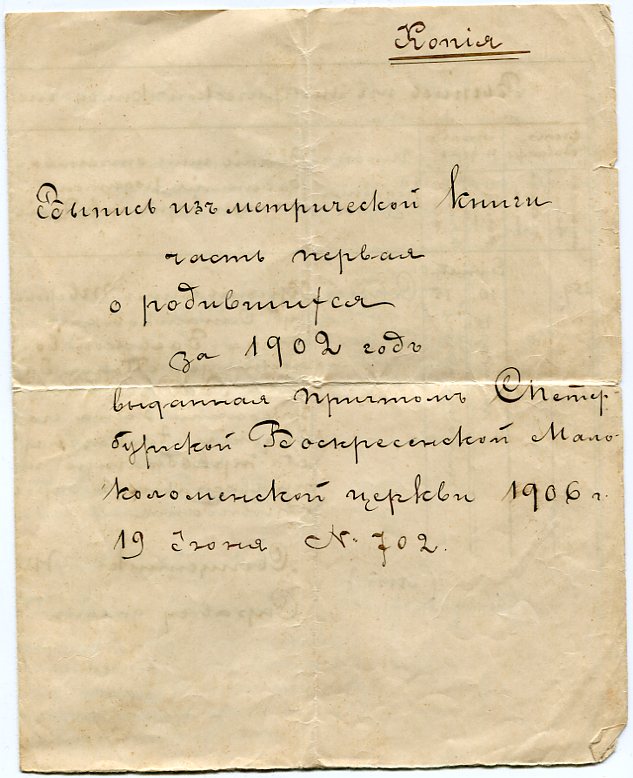 Копія
Выпись изъ метрической книги
часть первая
о родившихся
за 1902 годъ
выданная причтомъ СПетер-
бургской Воскресенской Мало-
коломенской церкви 1906 г.
19 Іюня № 702.